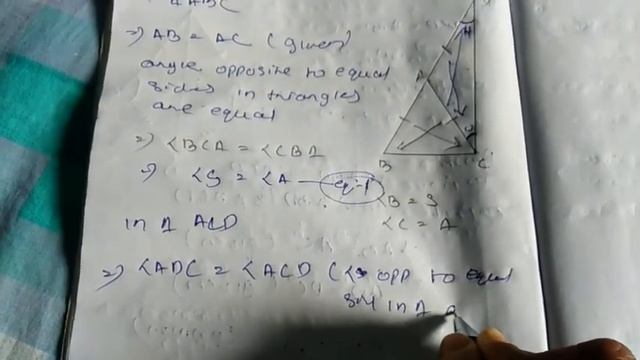 Δ ABC
=) AB = AC (given)
angle opposite to equal
sides in triangles
are equal
=) <BCA = <CBA
=) <3 = <A — eq:-1
<B = 3
<C = A
in Δ ACD
=) <ADC = <ACD (<s opp to equal
in Δ
A
B
C